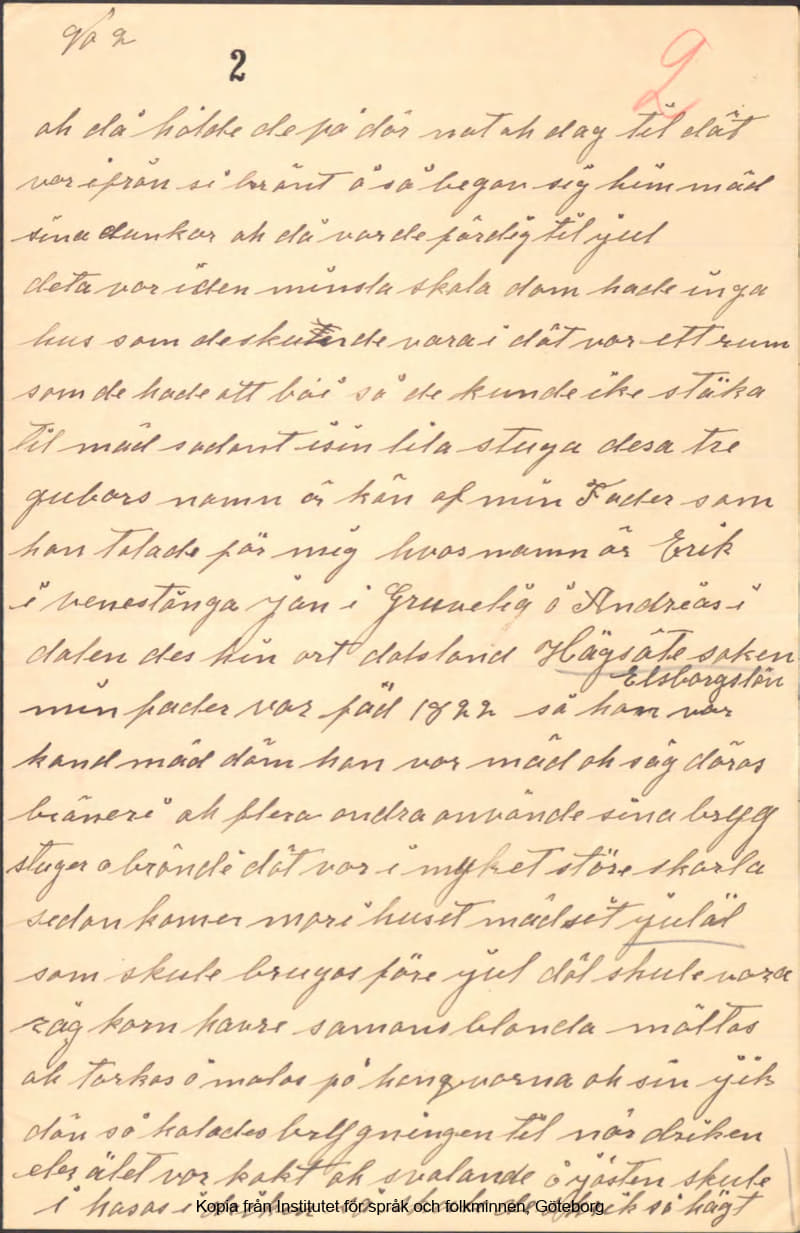 No 2
2
2
oh då hölde de på där nat oh dag til dät
var ifrån si bränt å så begav sig him mäd
sina dunkar oh då var de färdig til jul
deta var i den minsta skala dom hade inga
hus som de skulde vara i dät var ett rum
som de hade att bo i så de kunde ike stäka
til mäd sadant i sin lila stuga desa tre
gubars namn är kän af min Fader som
han talade för mig hvars namn är Erik
i venestånga jan i Gruvelig å Andreas i
dalen des hin ort dalsland Högsäte saken
Elsborgslän
min fader var föd 1822 så han var
kand mäd däm han var mäd oh såg däras
bräneri oh flera andra använde sina brygg
stuger o brände dät var i myket störe skarla
sedan komer mor i huset mäd sit juläl
som skule brugas före jul dät skule vara
råg korn havre samans blanda mältas
oh torkas å malas på hanqvarna oh sin jik
dän så kalades bryggningen til när driken
eler älet var kokt oh svalande å jästen skule
i hasas i driken så skule de skrik så högt
Kopia från Institutet för språk och folkminnen, Göteborg